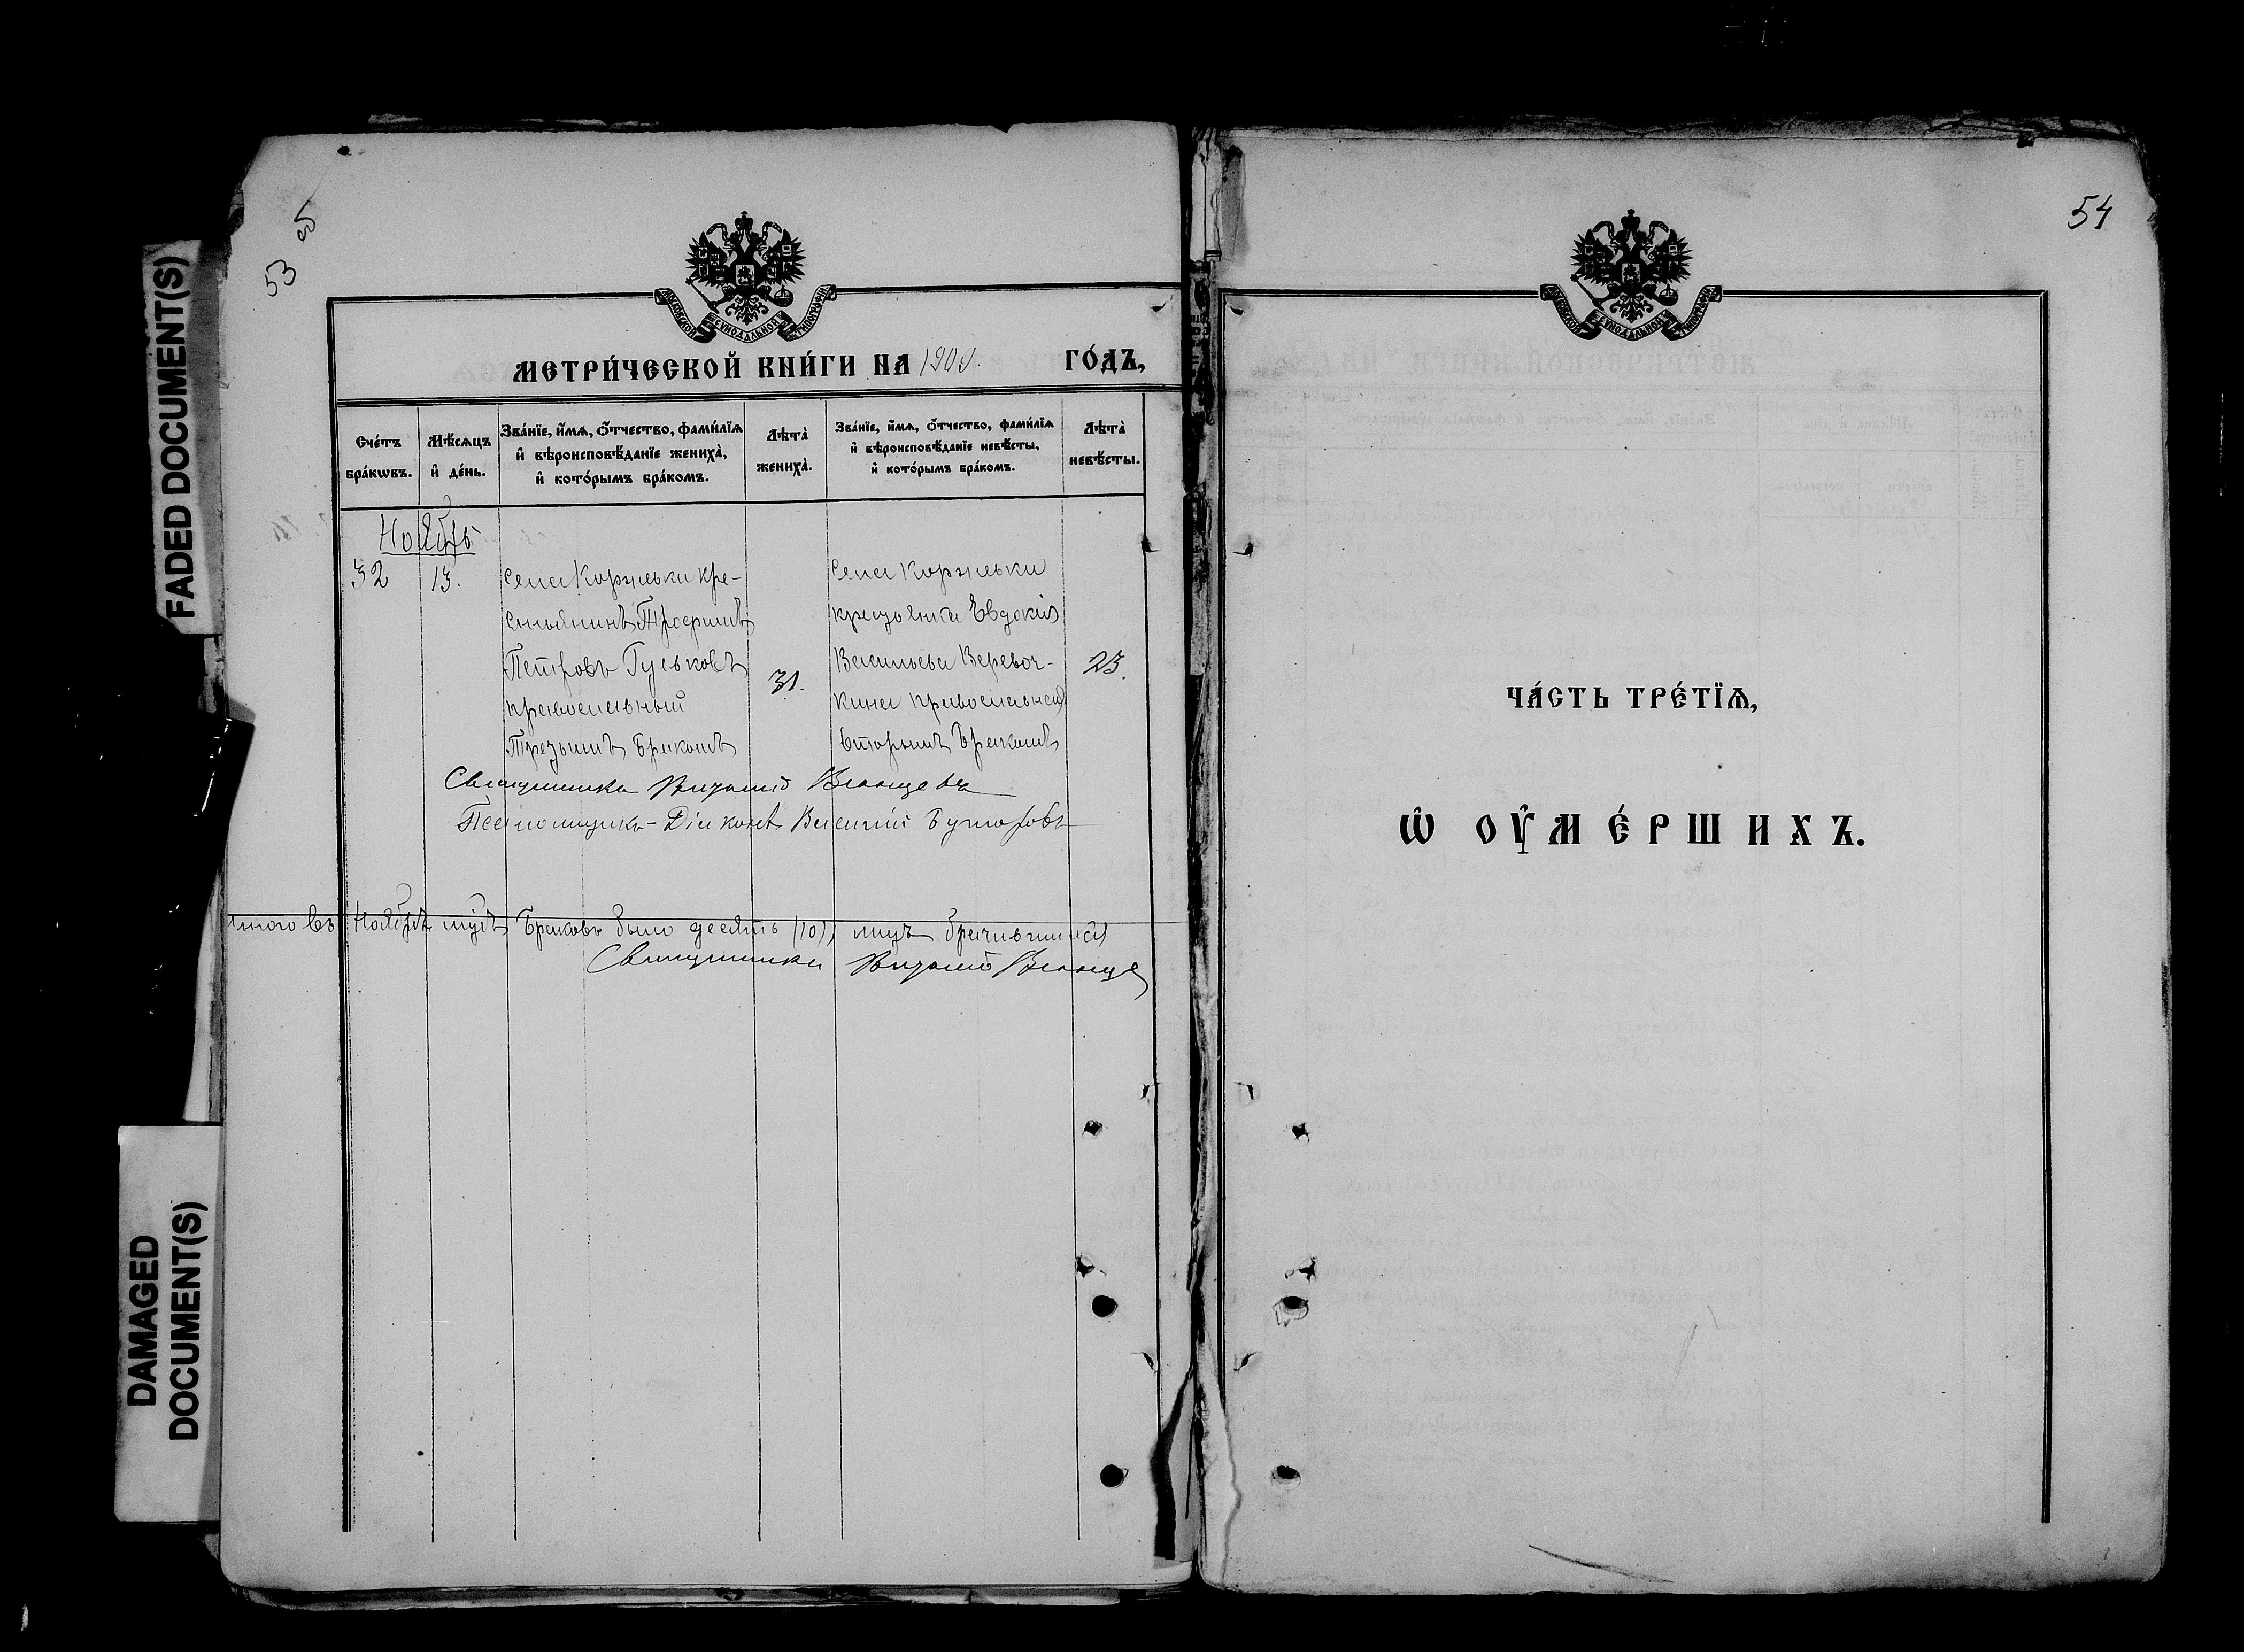 FADED DOCUMENT(S)
DAMAGED
DOCUMENT(S)
53 об
МОСКОВСКОЙ СѴНОДАЛЬНОЙ ТИПОГРАФІИ
МЕТРИ́ЧЕСКОЙ КНИ́ГИ НА 190 ГО́ДЪ,
Сче́тъ бра́кѡвъ.
Мѣ́сѧцъ и҆ де́нь.
Зва́нїе, и҆́мѧ, ѻ҆́тчество, фами́лїѧ
и҆ вѣроисповѣ́данїе жениха̀,
и҆ кото́рымъ бра́комъ.
Лѣта̀ жениха̀.
Зва́нїе, и҆́мѧ, ѻ҆́тчество, фами́лїѧ
и҆ вѣроисповѣ́данїе невѣ́сты,
и҆ кото́рымъ бра́комъ.
Лѣта̀ невѣ́сты.
Ноябрь
32 13. Села Коржевки кре-
стьянинъ Трофимъ
Петровъ Гуськовъ
православный
Третьимъ бракомъ
31.
Села Коржевки
крестьянка Евдокія
Васильева Веревоч-
кина православная
вторымъ бракомъ
23.
Священникъ Виталій
Псаломщикъ-Діаконъ Василій Буторовъ
Итого въ Ноябрѣ мцѣ браковъ было десять (10), лицъ брачившихся
Священникъ Виталій
54
МОСКОВСКОЙ СѴНОДАЛЬНОЙ ТИПОГРАФІИ
ЧА́СТЬ ТРЕ́ТЇѦ,
Ѡ҆ ОУ҆МЕ́РШИХЪ.